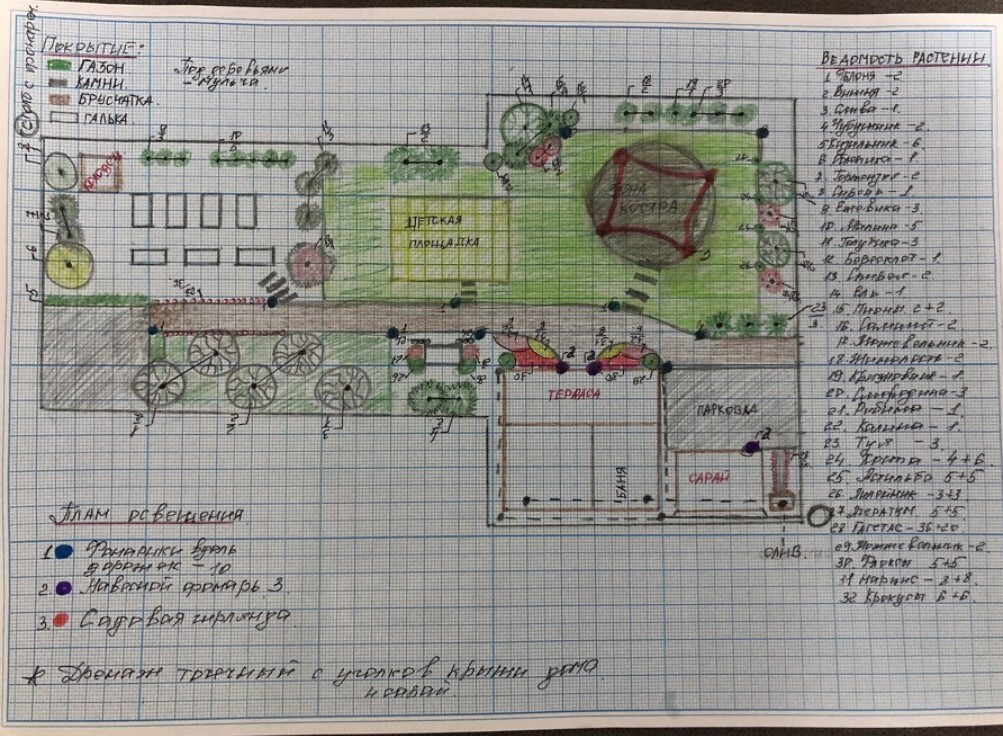 ПОКРЫТИЕ:
ГАЗОН
КАМНИ
БРУСЧАТКА.
ГАЛЬКА
Под деревьями
- мульча.
КОЛОДЕЦ
ДЕТСКАЯ
ПЛОЩАДКА
ЗОНА
КОСТРА
ТЕРРАСА
БАНЯ
ПАРКОВКА
САРАЙ
СЛИВ
ПЛАН ОСВЕЩЕНИЯ
1 Фонарики вдоль
дорожек - 10
2 Навесной фонарь. 3
3. Садовая гирлянда
* Дренаж точечный с уголков крыши дома
и сарая.
ВЕДОМОСТЬ РАСТЕНИЙ
1. Яблоня - 2
2. Вишня - 2
3. Слива - 1.
4. Чубушник - 2.
5. Кизильник - 6
8. Сирень - 1
9. Ежевика - 3
10. Малина - 5
11. Голубика - 3
12. Бересклет - 1.
14. Ель - 1
15. Пионы. 2+2
17. Можжевельник - 2
18. Жимолость - 2
19. Крыжовник - 1
20. Смородина - 3
21. Рябина - 1
22. Калина - 1.
23. Туя - 3.
24. Хоста - 4+6
25. Астильба 5+5
26. Лилейник - 3+3
27. Агератум. 5+5
28. Тагетас - 36+20
29. Можжевельник - 2
30. Флоксы 5+5
31 Нарцис - 8+8
32. Крокусы 6+6